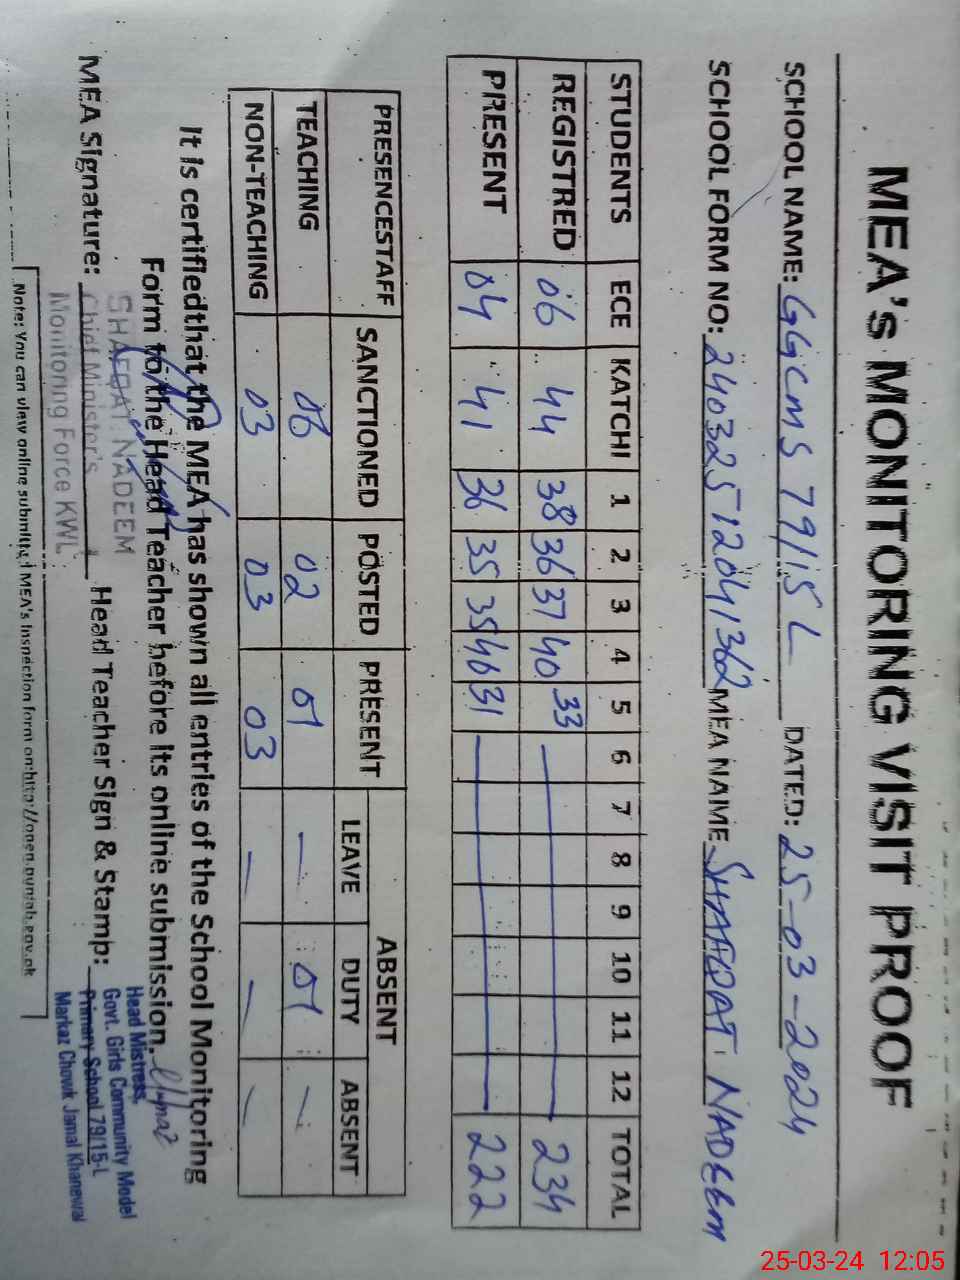 MEA's MONITORING VISIT PROOF
SCHOOL NAME: GGCMS 79/15 L DATED: 25-03-2024
SCHOOL FORM NO: 24032512041362 MEA NAME SHAFQAT NADEEM
STUDENTS ECE KATCHI 1 2 3 4 5 6 7 8 9 10 11 12 TOTAL
REGISTRED 06 44 38 36 37 40 33 — 234
PRESENT 04 41 36 35 35 40 31 — 222
PRESENCESTAFF SANCTIONED POSTED PRESENT ABSENT
LEAVE DUTY ABSENT
TEACHING 06 02 01 — 01 —
NON-TEACHING 03 03 03 — — —
It is certifiedthat the MEA has shown all entries of the School Monitoring
Form to the Head Teacher before its online submission.
MEA Signature: Head Teacher Sign & Stamp:
SHAFQAT NADEEM
Chief Minister's
Monitoring Force KWL
Head Mistress,
Govt. Girls Community Model
Primary School 79/15-L
Markaz Chowk Jamal Khanewal
Note: You can view online submitted MEA's Inspection form on:http://open.punjab.gov.pk
25-03-24 12:05